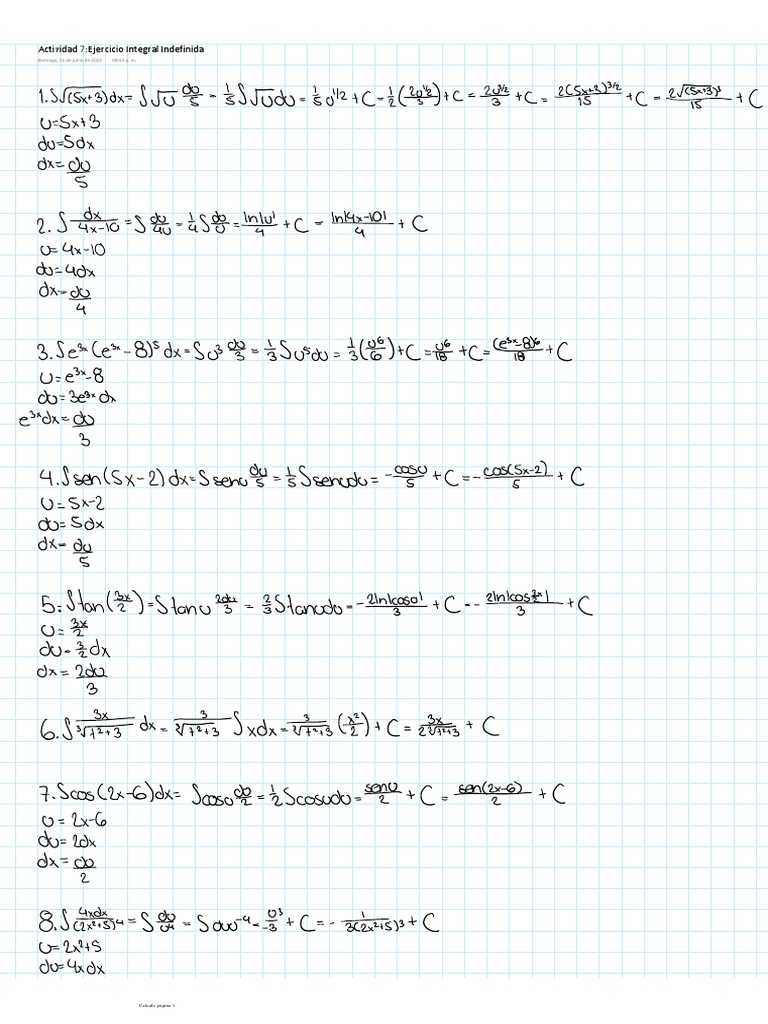 Actividad 7:Ejercicio Integral Indefinida
domingo, 11 de junio de 2023 08:53 p. m.
1. ∫√(5x+3) dx = ∫√u du/5 = 1/5 ∫√u du = 1/5 u^1/2 + C = 1/2 (2u^1/2/3) + C = 2u^3/2/3 + C = 2(5x+3)^3/2/15 + C = 2√(5x+3)^3/15 + C
u=5x+3
du=5dx
dx= du/5
2. ∫ dx/4x-10 = ∫ du/4u = 1/4 ∫ du/u = ln|u|/4 + C = ln|4x-10|/4 + C
u=4x-10
du=4dx
dx= du/4
3. ∫e^3x (e^3x - 8)^5 dx = ∫u^3 du/3 = 1/3 ∫u^5 du = 1/3 (u^6/6) + C = u^6/18 + C = (e^3x-8)^6/18 + C
u=e^3x-8
du=3e^3x dx
e^3x dx= du/3
4. ∫sen(5x-2) dx = ∫senu du/5 = 1/5 ∫senudu = -cosu/5 + C = -cos(5x-2)/5 + C
u=5x-2
du=5dx
dx= du/5
5. ∫tan(3x/2) = ∫tanu 2du/3 = 2/3 ∫tanudu = -2ln|cosu|/3 + C = -2ln|cos 3x/2|/3 + C
u= 3x/2
du= 3/2 dx
dx= 2du/3
6. ∫ 3x/∛7²+3 dx = 3/∛7²+3 ∫xdx = 3/∛7²+3 (x²/2) + C = 3x/2∛7²+3 + C
7. ∫cos(2x-6)dx = ∫cosu du/2 = 1/2 ∫cosudu = senu/2 + C = sen(2x-6)/2 + C
u=2x-6
du=2dx
dx= du/2
8. ∫ 4xdx/(2x²+5)^4 = ∫ du/u^4 = ∫duu^-4 = u^3/-3 + C = - 1/3(2x²+5)^3 + C
u=2x²+5
du=4xdx
Calculo página 1